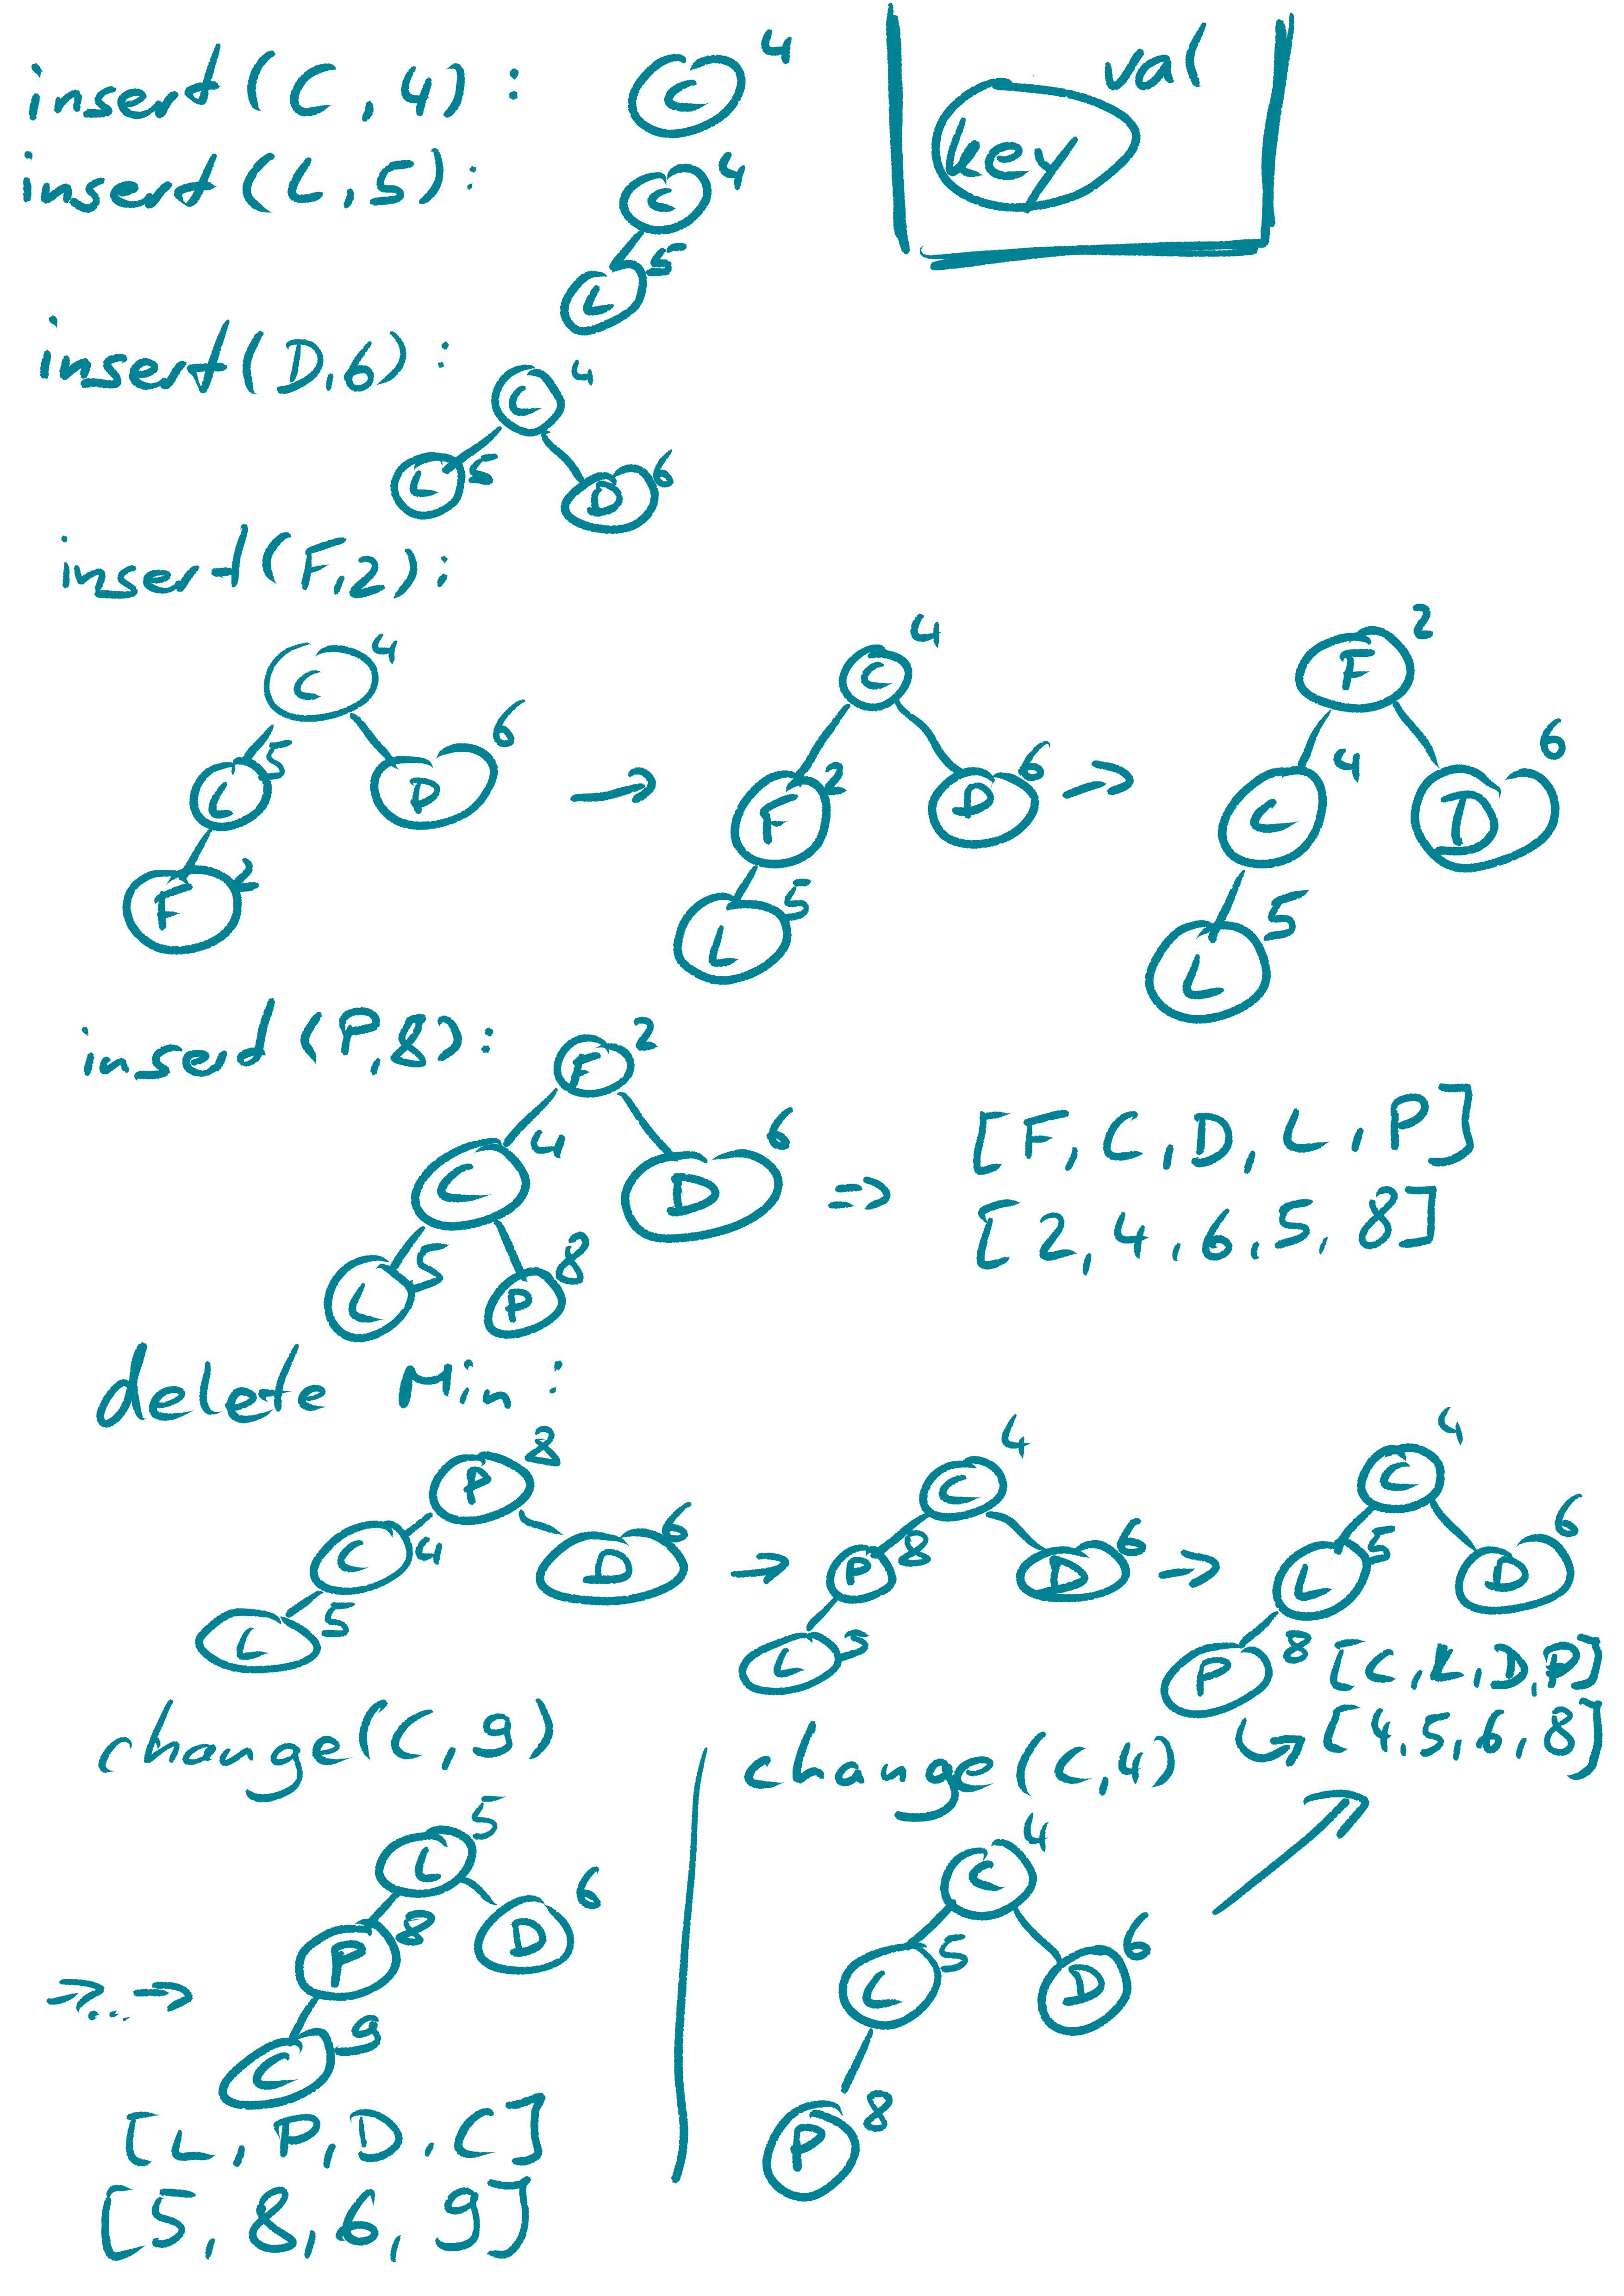 insert(C,4):
C 4
val
key
insert(L,5):
C 4
L 5
insert(D,6):
C 4
L 5 D 6
insert(F,2):
C 4 C 4 F 2
L 5 D 6 -> F 2 D 6 -> C 4 D 6
F 2 L 5 L 5
insert(P,8):
F 2
C 4 D 6 => [F,C,D,L,P]
[2,4,6,5,8]
L 5 P 8
delete Min:
P 8 C 4 C 4
C 4 D 6 -> P 8 D 6 -> L 5 D 6
L 5 L 5 P 8
[C,L,D,P]
[4,5,6,8]
change(C,9)
L 5
P 8 D 6
->...->
C 9
[L,P,D,C]
[5,8,6,9]
change(C,4)
C 4
L 5 D 6
P 8